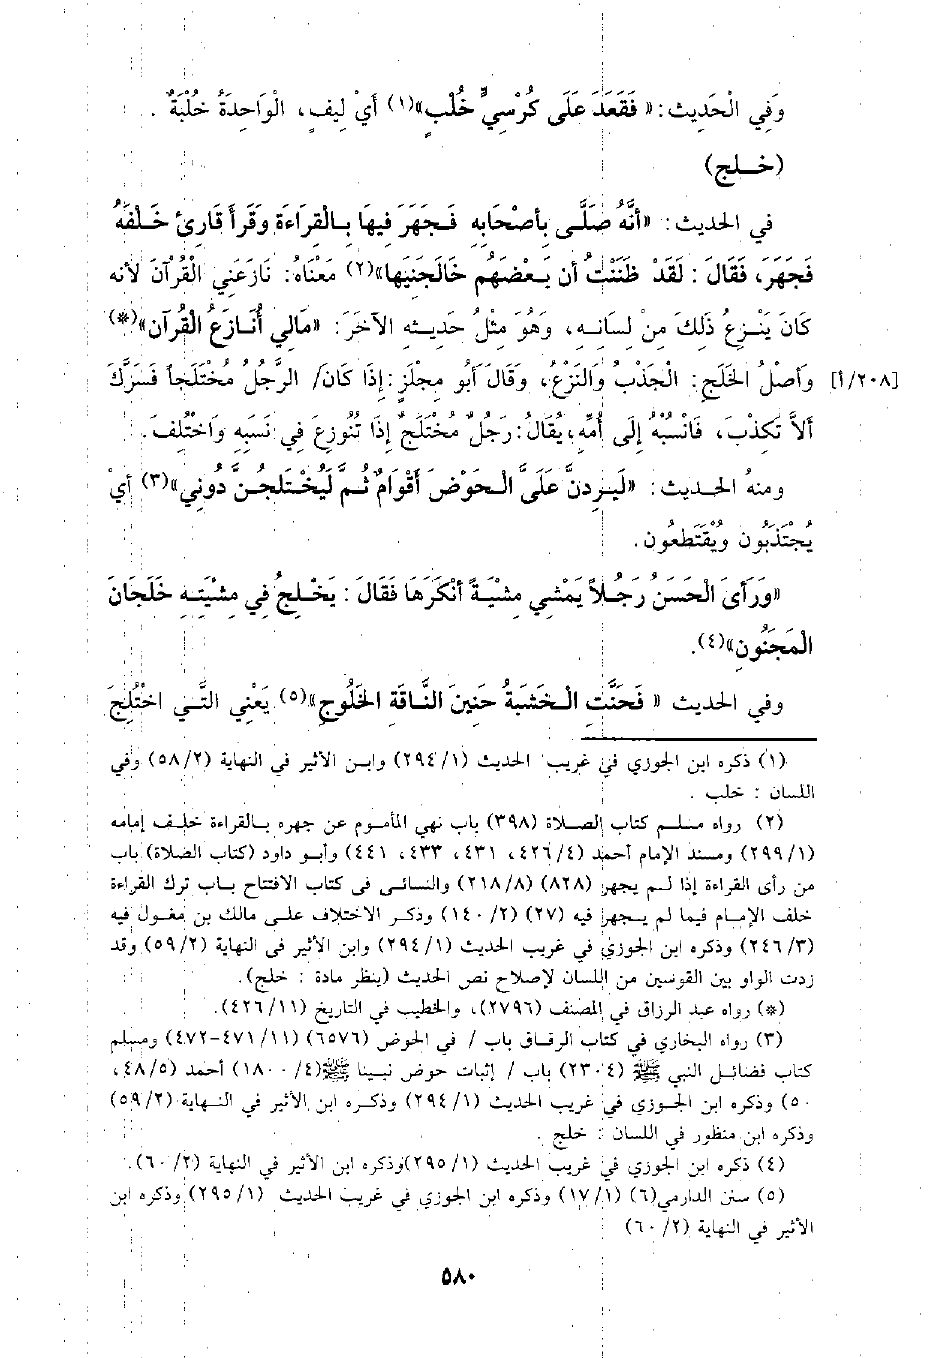 وَفِي الْحَدِيث: « فَقَعَدَ عَلَى كُرْسِيٍّ خُلْبٍ»(١) أَيْ لِيفٍ، الْوَاحِدَةُ خُلْبَةٌ .
(خـلـج)
في الحديث: «أنَّهُ صَلَّـى بأصْحَابِهِ فَـجَهَرَ فِيهَا بـالْقِرَاءَةِ وَقَرَأَ قَارِئ خَـلْفَهُ
فَجَهَرَ، فَقَالَ : لَقَدْ ظَنَنْتُ أن بَـعْضَهُم خَالَجَنِيَها»(٢) مَعْنَاهُ: نَازَعَنِي الْقُرْآنَ لأنه
كَانَ يَنْـزِعُ ذَلِكَ مِنْ لِسَانِـهِ، وَهُوَ مِثْلُ حَدِيـثِهِ الآخَرَ: «مَالِي أُنَـازَعُ الْقُرآن»(*)
[٢٠٨/أ] وأصْلُ الخَلَجِ: الْجَذْبُ وَالنَزْعُ، وَقَالَ أَبُو مِجْلَزٍ: إذَا كَانَ/ الرَّجُلُ مُخْتَلَجاً فَسَرَّكَ
ألاَّ تَكْذِبَ، فَانْسُبْهُ إلَى أُمِّهِ، يُقَالُ: رَجُلٌ مُخْتَلَجٌ إذَا تُنُوزِعَ فِي نَسَبِهِ وَاخْتُلِفَ.
ومنهُ الحـديث: «لَيَـرِدنَّ عَلَيَّ الْـحَوْضَ أقْوَامٌ ثُـمَّ لَيُخْـتَلَجُـنَّ دُونِي»(٣) أيْ
يُجْتَذَبُون ويُقْتَطَعُون.
«وَرَأَى الْحَسَنُ رَجُـلاً يَمْشِي مِشْيَـةً أنْكَرَهَا فَقَالَ : يَخْـلِجُ فِي مِشْيَتِـهِ خَلَجَانَ
الْمَجْنُونِ»(٤).
وفي الحديث « فَحَنَّتِ الْـخَشَبَةُ حَنِينَ النَّـاقَةِ الخَلُوجِ»(٥) يَعْنِي التَّـي اخْتُلِجَ
(١) ذكره ابن الجوزي في غريب الحديث (٢٩٤/١) وابـن الأثير في النهاية (٥٨/٢) وفي
اللسان : خلب .
(٢) رواه مسـلـم كتاب الصـلاة (٣٩٨) باب نهي المأمـوم عن جهره بـالقراءة خلـف إمامه
(٢٩٩/١) ومسند الإمام أحمد (٤٢٦/٤، ٤٣١، ٤٣٣، ٤٤١) وأبـو داود (كتاب الصلاة) باب
من رأى القراءة إذا لـم يجهر (٨٢٨) (٢١٨/٨) والنسـائـي فى كتاب الافتتاح بـاب ترك القراءة
خلف الإمـام فيما لم يجهر فيه (٢٧) (١٤٠/٢) وذكـر الاختلاف علـى مالك بن مغول فيه
(٢٤٦/٣) وذكره ابن الجوزي في غريب الحديث (٢٩٤/١) وابن الأثير فى النهاية (٥٩/٢) وقد
زدت الواو بين القوسين من اللسان لإصلاح نص الحديث (ينظر مادة : خلج).
(*) رواه عبد الرزاق في المصنف (٢٧٩٦)، والخطيب في التاريخ (٤٢٦/١١).
(٣) رواه البخاري في كتاب الرقـاق باب / في الحوض (٦٥٧٦) (٤٧١/١١-٤٧٢) ومسلم
كتاب فضائـل النبي ﷺ (٢٣٠٤) باب / إثبات حوض نبـينا ﷺ(١٨٠٠/٤) أحمد (٤٨/٥،
٥٠) وذكره ابن الجـوزي في غريب الحديث (٢٩٤/١) وذكـره ابن الأثير في النـهاية (٥٩/٢)
وذكره ابن منظور في اللسان : خلج .
(٤) ذكره ابن الجوزي في غريب الحديث (٢٩٥/١)وذكره ابن الأثير في النهاية (٦٠/٢).
(٥) سنن الدارمي(٦) (١٧/١) وذكره ابن الجوزي في غريب الحديث (٢٩٥/١) وذكره ابن
الأثير في النهاية (٦٠/٢)
٥٨٠